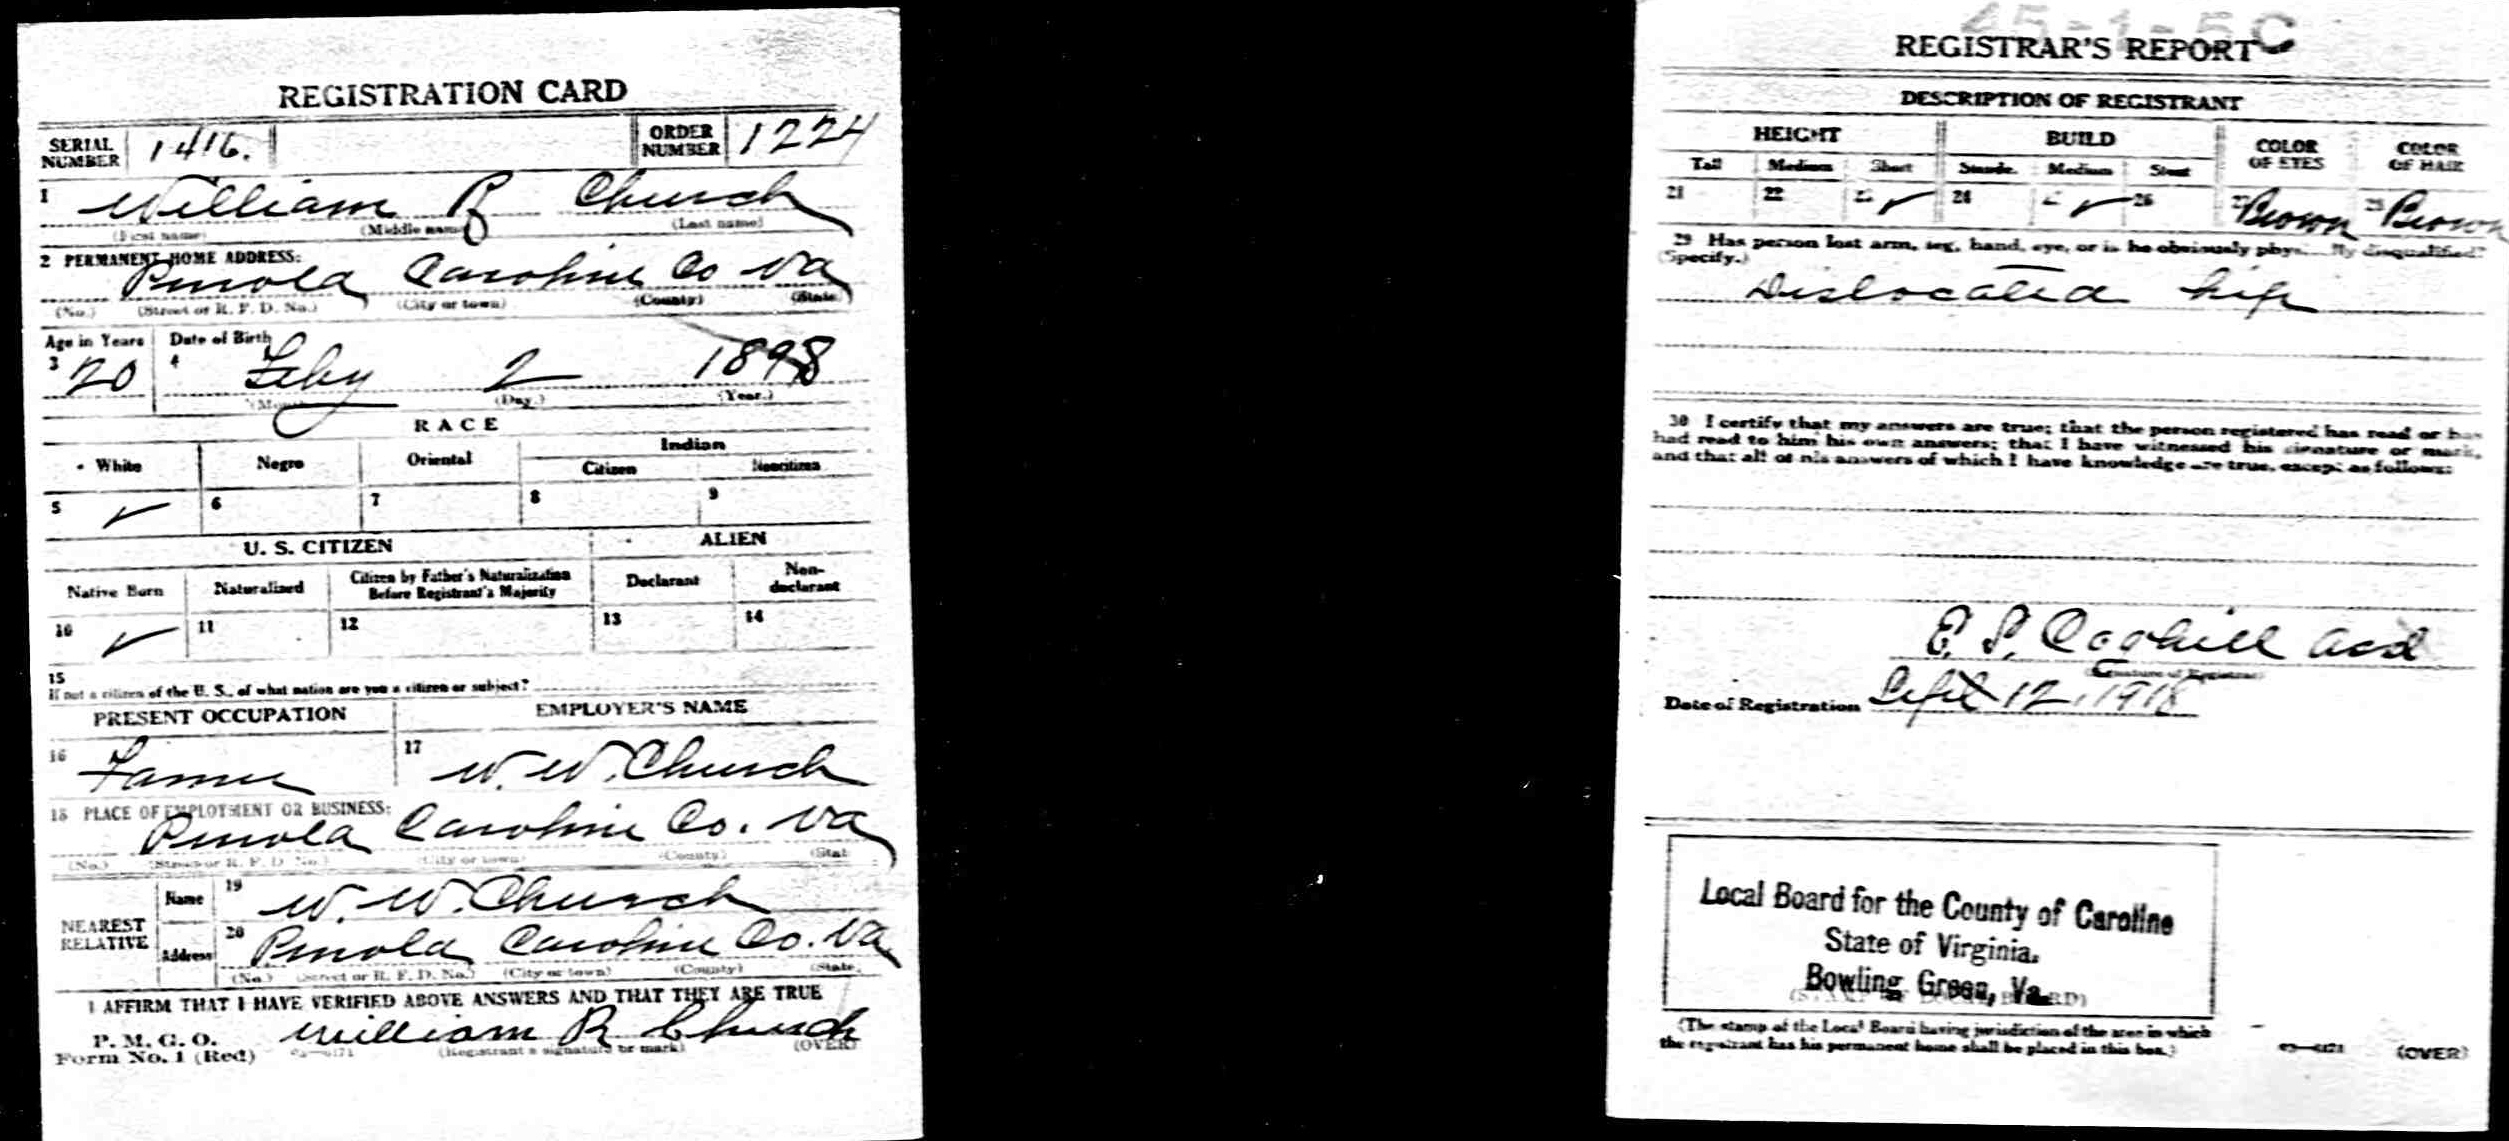 REGISTRATION CARD
SERIAL NUMBER 1416. ORDER NUMBER 1224
1 William R Church
(First name) (Middle name) (Last name)
2 PERMANENT HOME ADDRESS:
Penola Caroline Co Va
(No.) (Street or R. F. D. No.) (City or town) (County) (State)
Age in Years Date of Birth
3 20 4 Feby 2 1898
(Month) (Day.) (Year.)
RACE
White Negro Oriental Indian
Citizen Noncitizen
5 ✓ 6 7 8 9
U. S. CITIZEN ALIEN
Native Born Naturalized Citizen by Father's Naturalization Before Registrant's Majority Declarant Non-declarant
10 ✓ 11 12 13 14
15
If not a citizen of the U. S., of what nation are you a citizen or subject?
PRESENT OCCUPATION EMPLOYER'S NAME
16 Farmer 17 W. W. Church
18 PLACE OF EMPLOYMENT OR BUSINESS:
Penola Caroline Co. Va
(No.) (Street or R. F. D. No.) (City or town) (County) (State)
NEAREST RELATIVE Name 19 W. W. Church
Address 20 Penola Caroline Co. Va
(No.) (Street or R. F. D. No.) (City or town) (County) (State)
I AFFIRM THAT I HAVE VERIFIED ABOVE ANSWERS AND THAT THEY ARE TRUE
P. M. G. O.
Form No. 1 (Red) William R Church
(Registrant's signature or mark) (OVER)
45-1-5 C
REGISTRAR'S REPORT
DESCRIPTION OF REGISTRANT
HEIGHT BUILD COLOR OF EYES COLOR OF HAIR
Tall Medium Short Slender Medium Stout
21 22 23 ✓ 24 25 ✓ 26 27 Brown 28 Brown
29 Has person lost arm, leg, hand, eye, or is he obviously physically disqualified?
(Specify.)
Dislocated hip
30 I certify that my answers are true; that the person registered has read or has
had read to him his own answers; that I have witnessed his signature or mark,
and that all of his answers of which I have knowledge are true, except as follows:
E. S. Coghill
(Signature of Registrar)
Date of Registration Sept 12, 1918
Local Board for the County of Caroline
State of Virginia.
Bowling Green, Va.
(STAMP OF LOCAL BOARD)
(The stamp of the Local Board having jurisdiction of the area in which
the registrant has his permanent home shall be placed in this box.)
03—6171 (OVER)